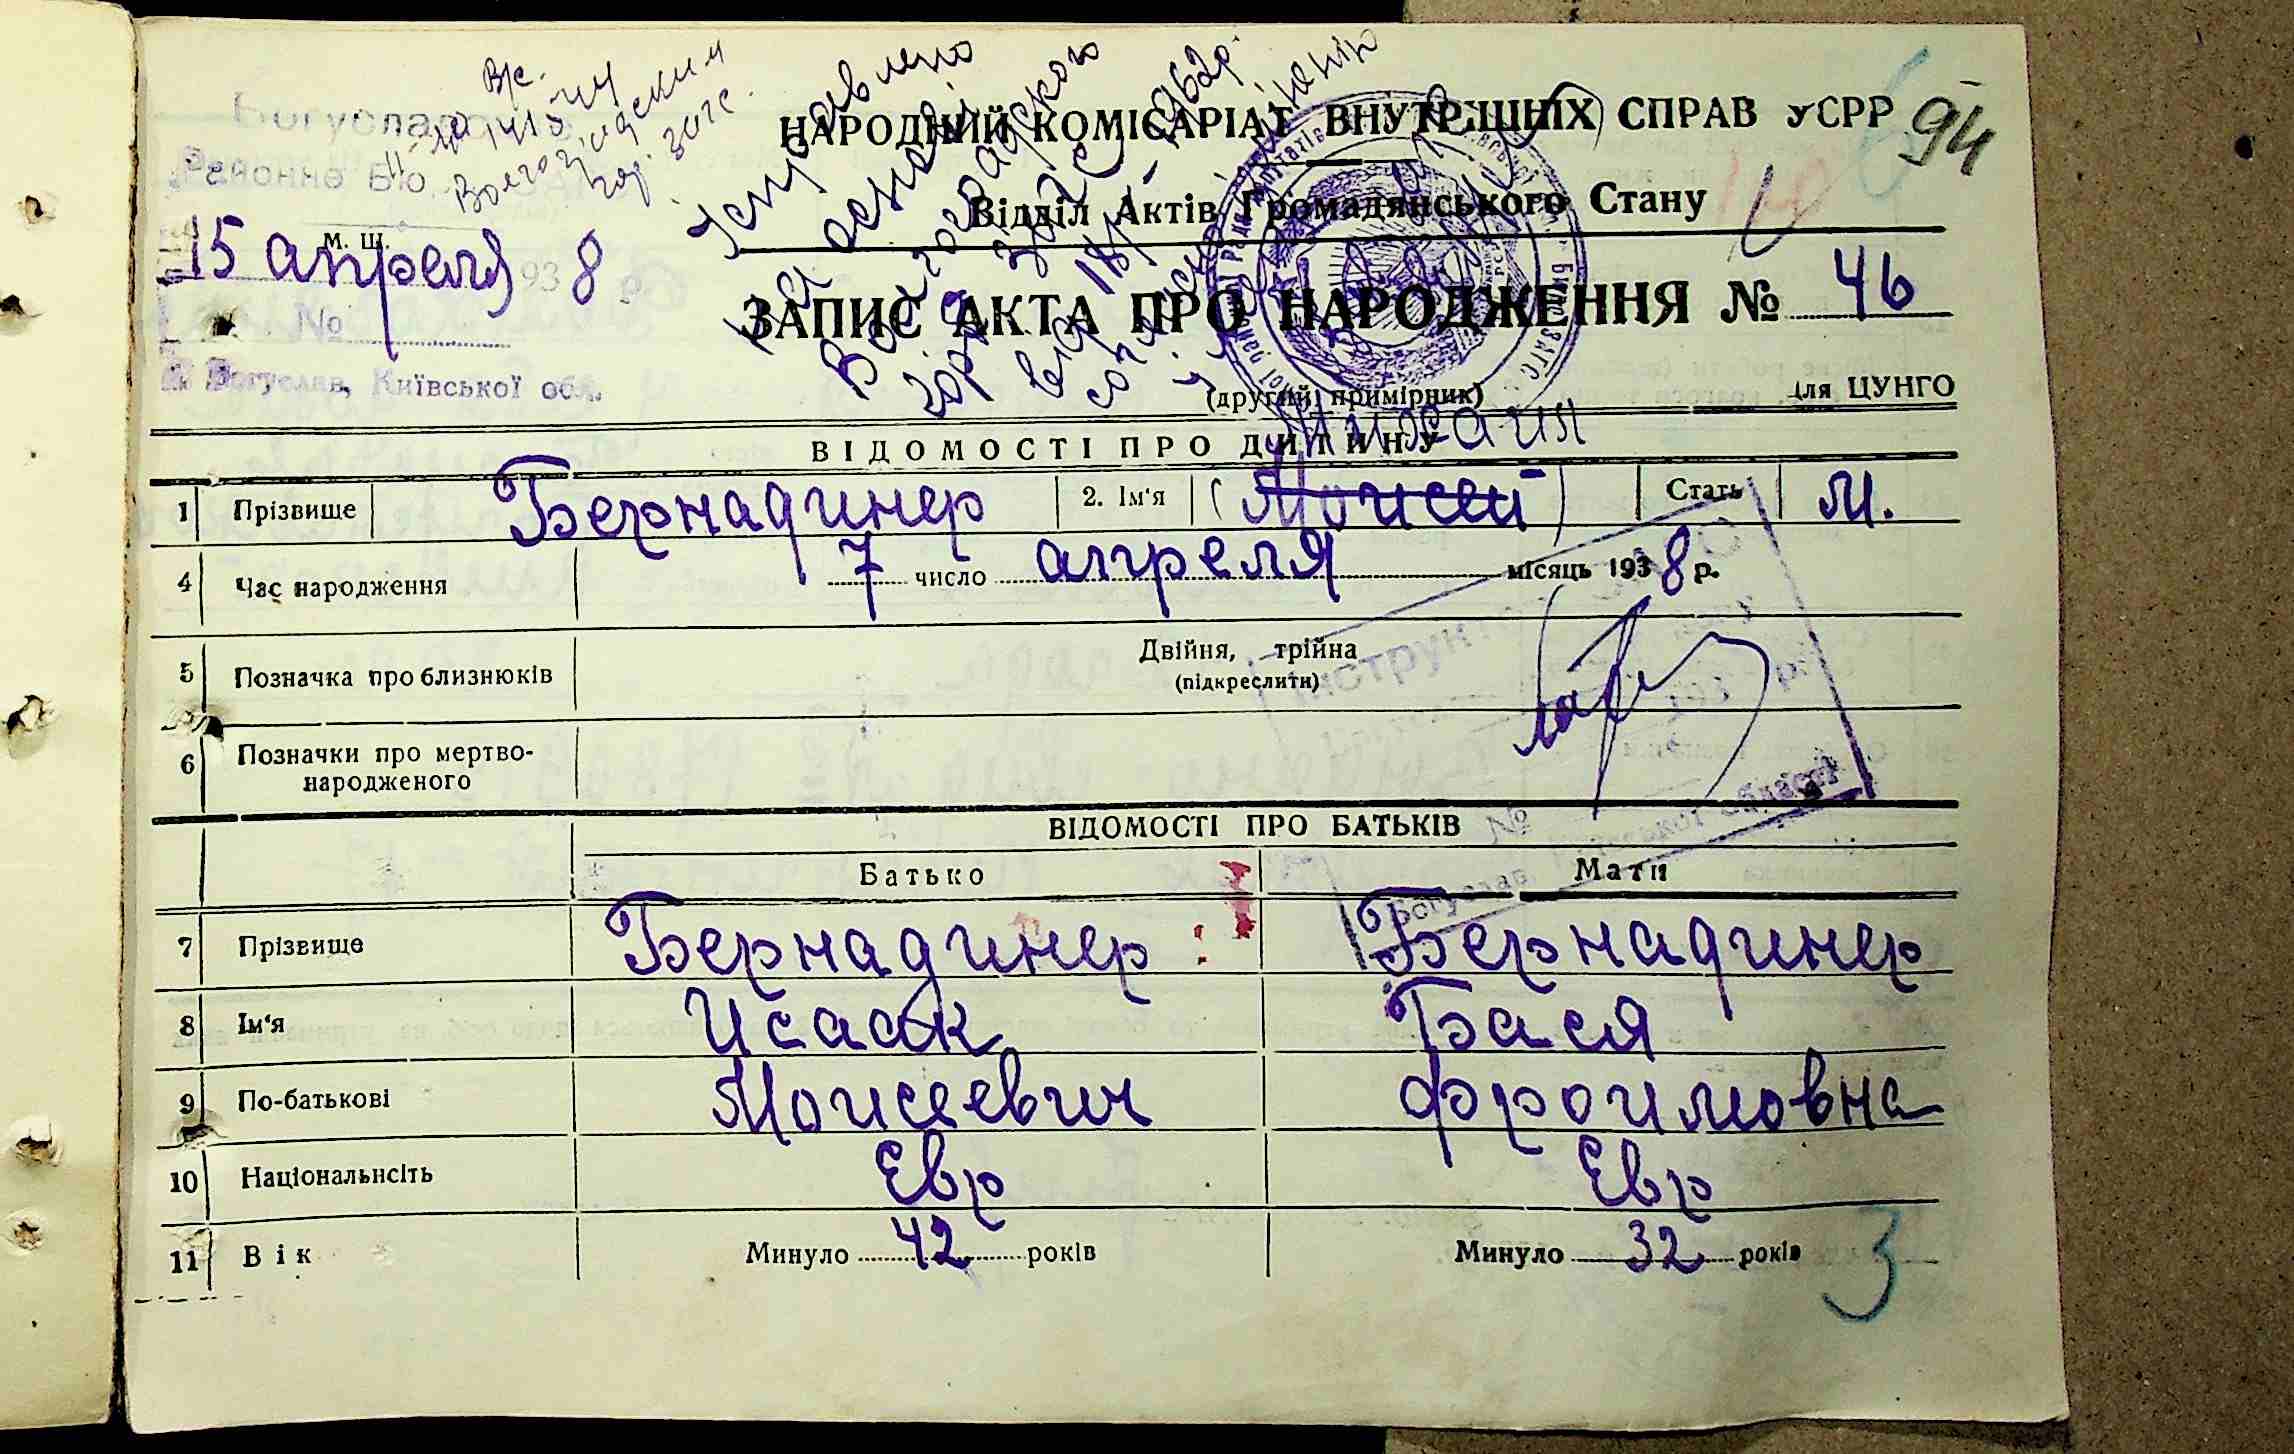 Вје.
Волгоградским
гор. загс.
Исправлено
на основании
Волгоградского
гор. ЗАГС
94
НАРОДНІЙ КОМІСАРІАТ ВНУТРІШНІХ СПРАВ УСРР
Відділ Актів Громадянського Стану
м. ш.
15 апреля 1938 р.
№
м. Богуслав, Київської обл.
ЗАПИС АКТА ПРО НАРОДЖЕННЯ № 46
(другий примірник)
для ЦУНГО
ВІДОМОСТІ ПРО ДИТИНУ
Михаил
1 Прізвище Бернадинер 2. Ім'я (Моисей) Стать М.
4 Час народження 7 число апреля місяць 1938 р.
5 Позначка про близнюків Двійня, трійна
(підкреслити)
6 Позначки про мертво-
народженого
ВІДОМОСТІ ПРО БАТЬКІВ
Батько Мати
7 Прізвище Бернадинер Бернадинер
8 Ім'я Исаак Бася
9 По-батькові Моисеевич Фроимовна
10 Національнсіть Евр Евр
11 Вік Минуло 42 років Минуло 32 років
3